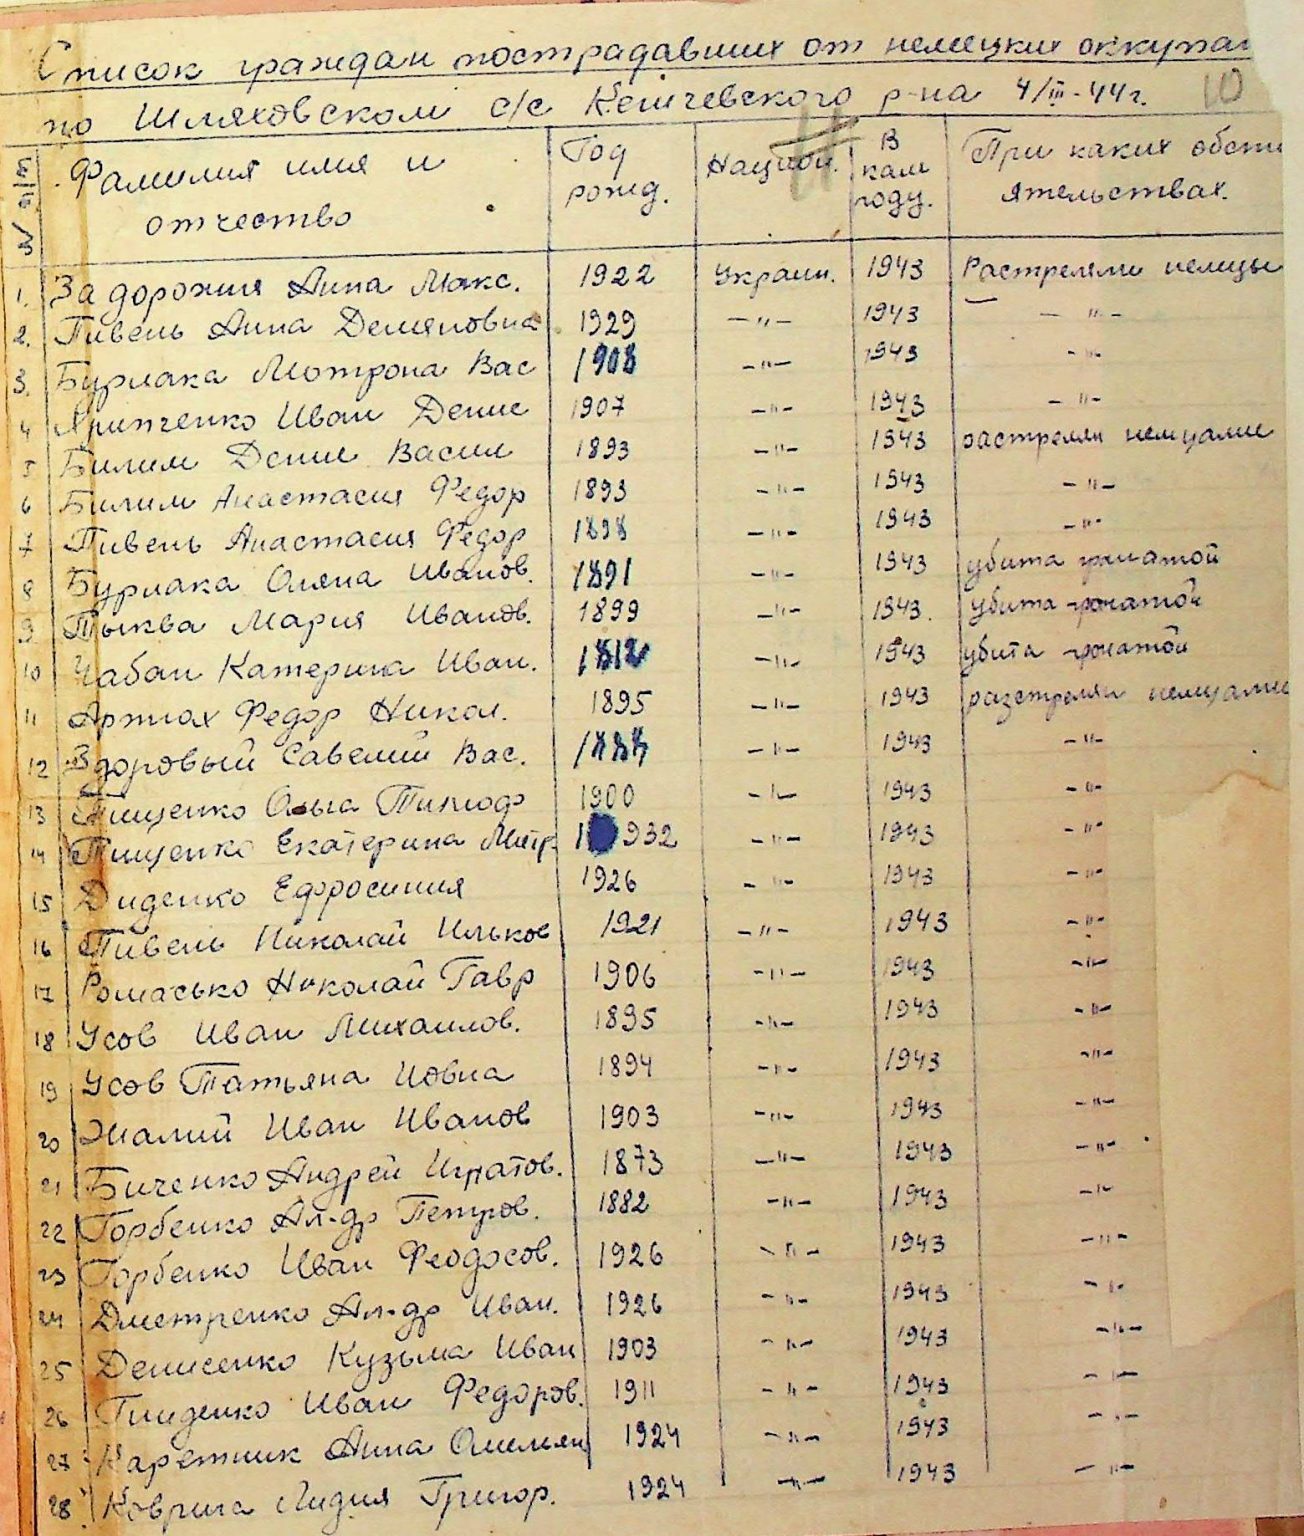 Список граждан пострадавших от немецких оккупаг
по Шляховском с/с Кегичевского р-на 4/III-44г. 10
№ п/п Фамилия имя и отчество Год рожд. Национ. В каком году. При каких обстоятельствах.
1. Задорожня Анна Макс. 1922 Украин. 1943 Растреляли немцы
2. Пивень Анна Демяновна 1929 -"- 1943 -"-
3. Бурлака Мотрона Вас 1908 -"- 1943 -"-
4 Иван Денис 1907 -"- 1943 -"-
5 Билим Денис Васил 1893 -"- 1943 растрелян немцами
6 Билим Анастасия Федор 1893 -"- 1943 -"-
7 Пивень Анастасия Федор 1898 -"- 1943 -"-
8 Бурлака Оляна Иванов. 1891 -"- 1943 убита гранатой
9 Тыква Мария Иванов. 1899 -"- 1943. убита гронатой
10 Чабан Катерина Иван. -"- 1943 убита гронатой
11 Артюх Федор Никол. 1895 -"- 1943 разстрелян немцами
12 Здоровый Савелий Вас. -"- 1943 -"-
13 Пищенко Ольга Тимоф 1900 -"- 1943 -"-
14 Пищенко Екатерина Митр. 1932 -"- 1943 -"-
15 Диденко Ефросиния 1926 -"- 1943 -"-
16 Пивень Николай Ильков 1921 -"- 1943 -"-
17 Ромасько Николай Гавр 1906 -"- 1943 -"-
18 Усов Иван Михаилов. 1895 -"- 1943 -"-
19 Усов Татьяна Иовна 1894 -"- 1943 -"-
20 Жалий Иван Иванов 1903 -"- 1943 -"-
21 Биченко Андрей Игнатов. 1873 -"- 1943 -"-
22 Горбенко Ал-др Петров. 1882 -"- 1943 -"-
23 Горбенко Иван Феодосов. 1926 -"- 1943 -"-
24 Дметренко Ал-др Иван. 1926 -"- 1943 -"-
25 Денисенко Кузьма Иван 1903 -"- 1943 -"-
26 Иван Федоров. 1911 -"- 1943 -"-
27 Каретник Анна Омельян 1924 -"- 1943 -"-
28 Коврига Лидия Григор. 1924 -"- 1943 -"-